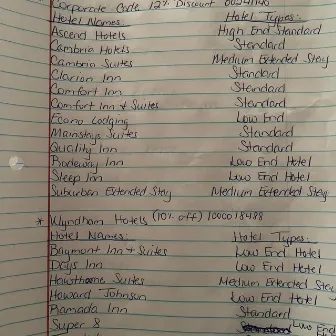 Corporate Code 12% Discount 00241140
Hotel Names: Hotel Types:
Ascend Hotels High End Standard
Cambria Hotels Standard
Cambria Suites Medium Extended Stay
Clarion Inn Standard
Comfort Inn Standard
Comfort Inn & Suites Standard
Econo Lodging Low End
Mainstays Suites Standard
Quality Inn Standard
Rodeway Inn Low End Hotel
Sleep Inn Low End Hotel
Suburban Extended Stay Medium Extended Stay
* Wyndham Hotels (10% off) 1000018488
Hotel Names: Hotel Types:
Baymont Inn & Suites Low End Hotel
Days Inn Low End Hotel
Hawthorne Suites Medium Extended Stay
Howard Johnson Low End Hotel
Ramada Inn Standard
Super 8 Low End